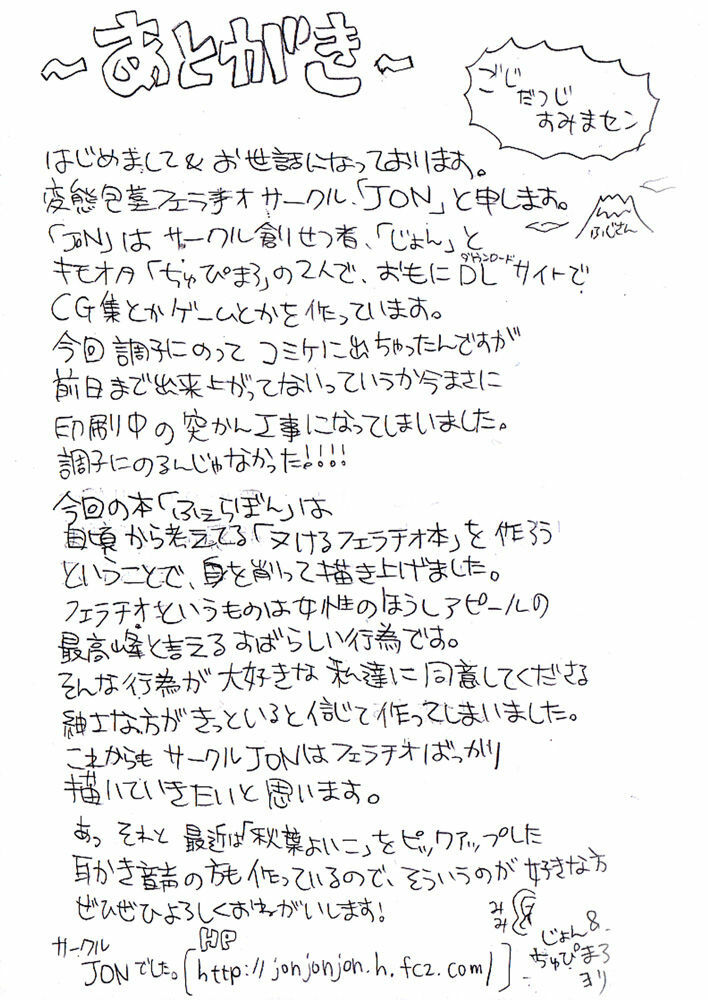 ~あとがき~
ごじ
だつじ
すみまセン
はじめまして&お世話になっております。
変態包茎フェラチオサークル、「JON」と申します。
ふじさん
「JON」はサークル創りせつ者、「じょん」と
キモオタ「ぢゅぴまろ」の2人で、おもにDLサイトで
ダウンロード
CG集とかゲームとかを作っています。
今回調子にのってコミケに出ちゃったんですが
前日まで出来上がってないっていうか今まさに
印刷中の突かん工事になってしまいました。
調子にのるんじゃなかった!!!!
今回の本「ふぇらぼん」は
日頃から考えてる「ヌけるフェラチオ本」を作ろう
ということで、身を削って描き上げました。
フェラチオというものは女性のほうしアピールの
最高峰と言えるすばらしい行為です。
そんな行為が大好きな私達に同意してくださる
紳士な方がきっといると信じて作ってしまいました。
これからもサークルJONはフェラチオばっかり
描いていきたいと思います。
あっ それと 最近は「秋葉よいこ」をピックアップした
耳かき音声の方も作っているので、そういうのが好きな方
ぜひぜひよろしくおねがいします!
みみ
サークル
JONでした。
HP
[http://jonjonjon.h.fc2.com/]
じょん&
ぢゅぴまろ
ヨリ